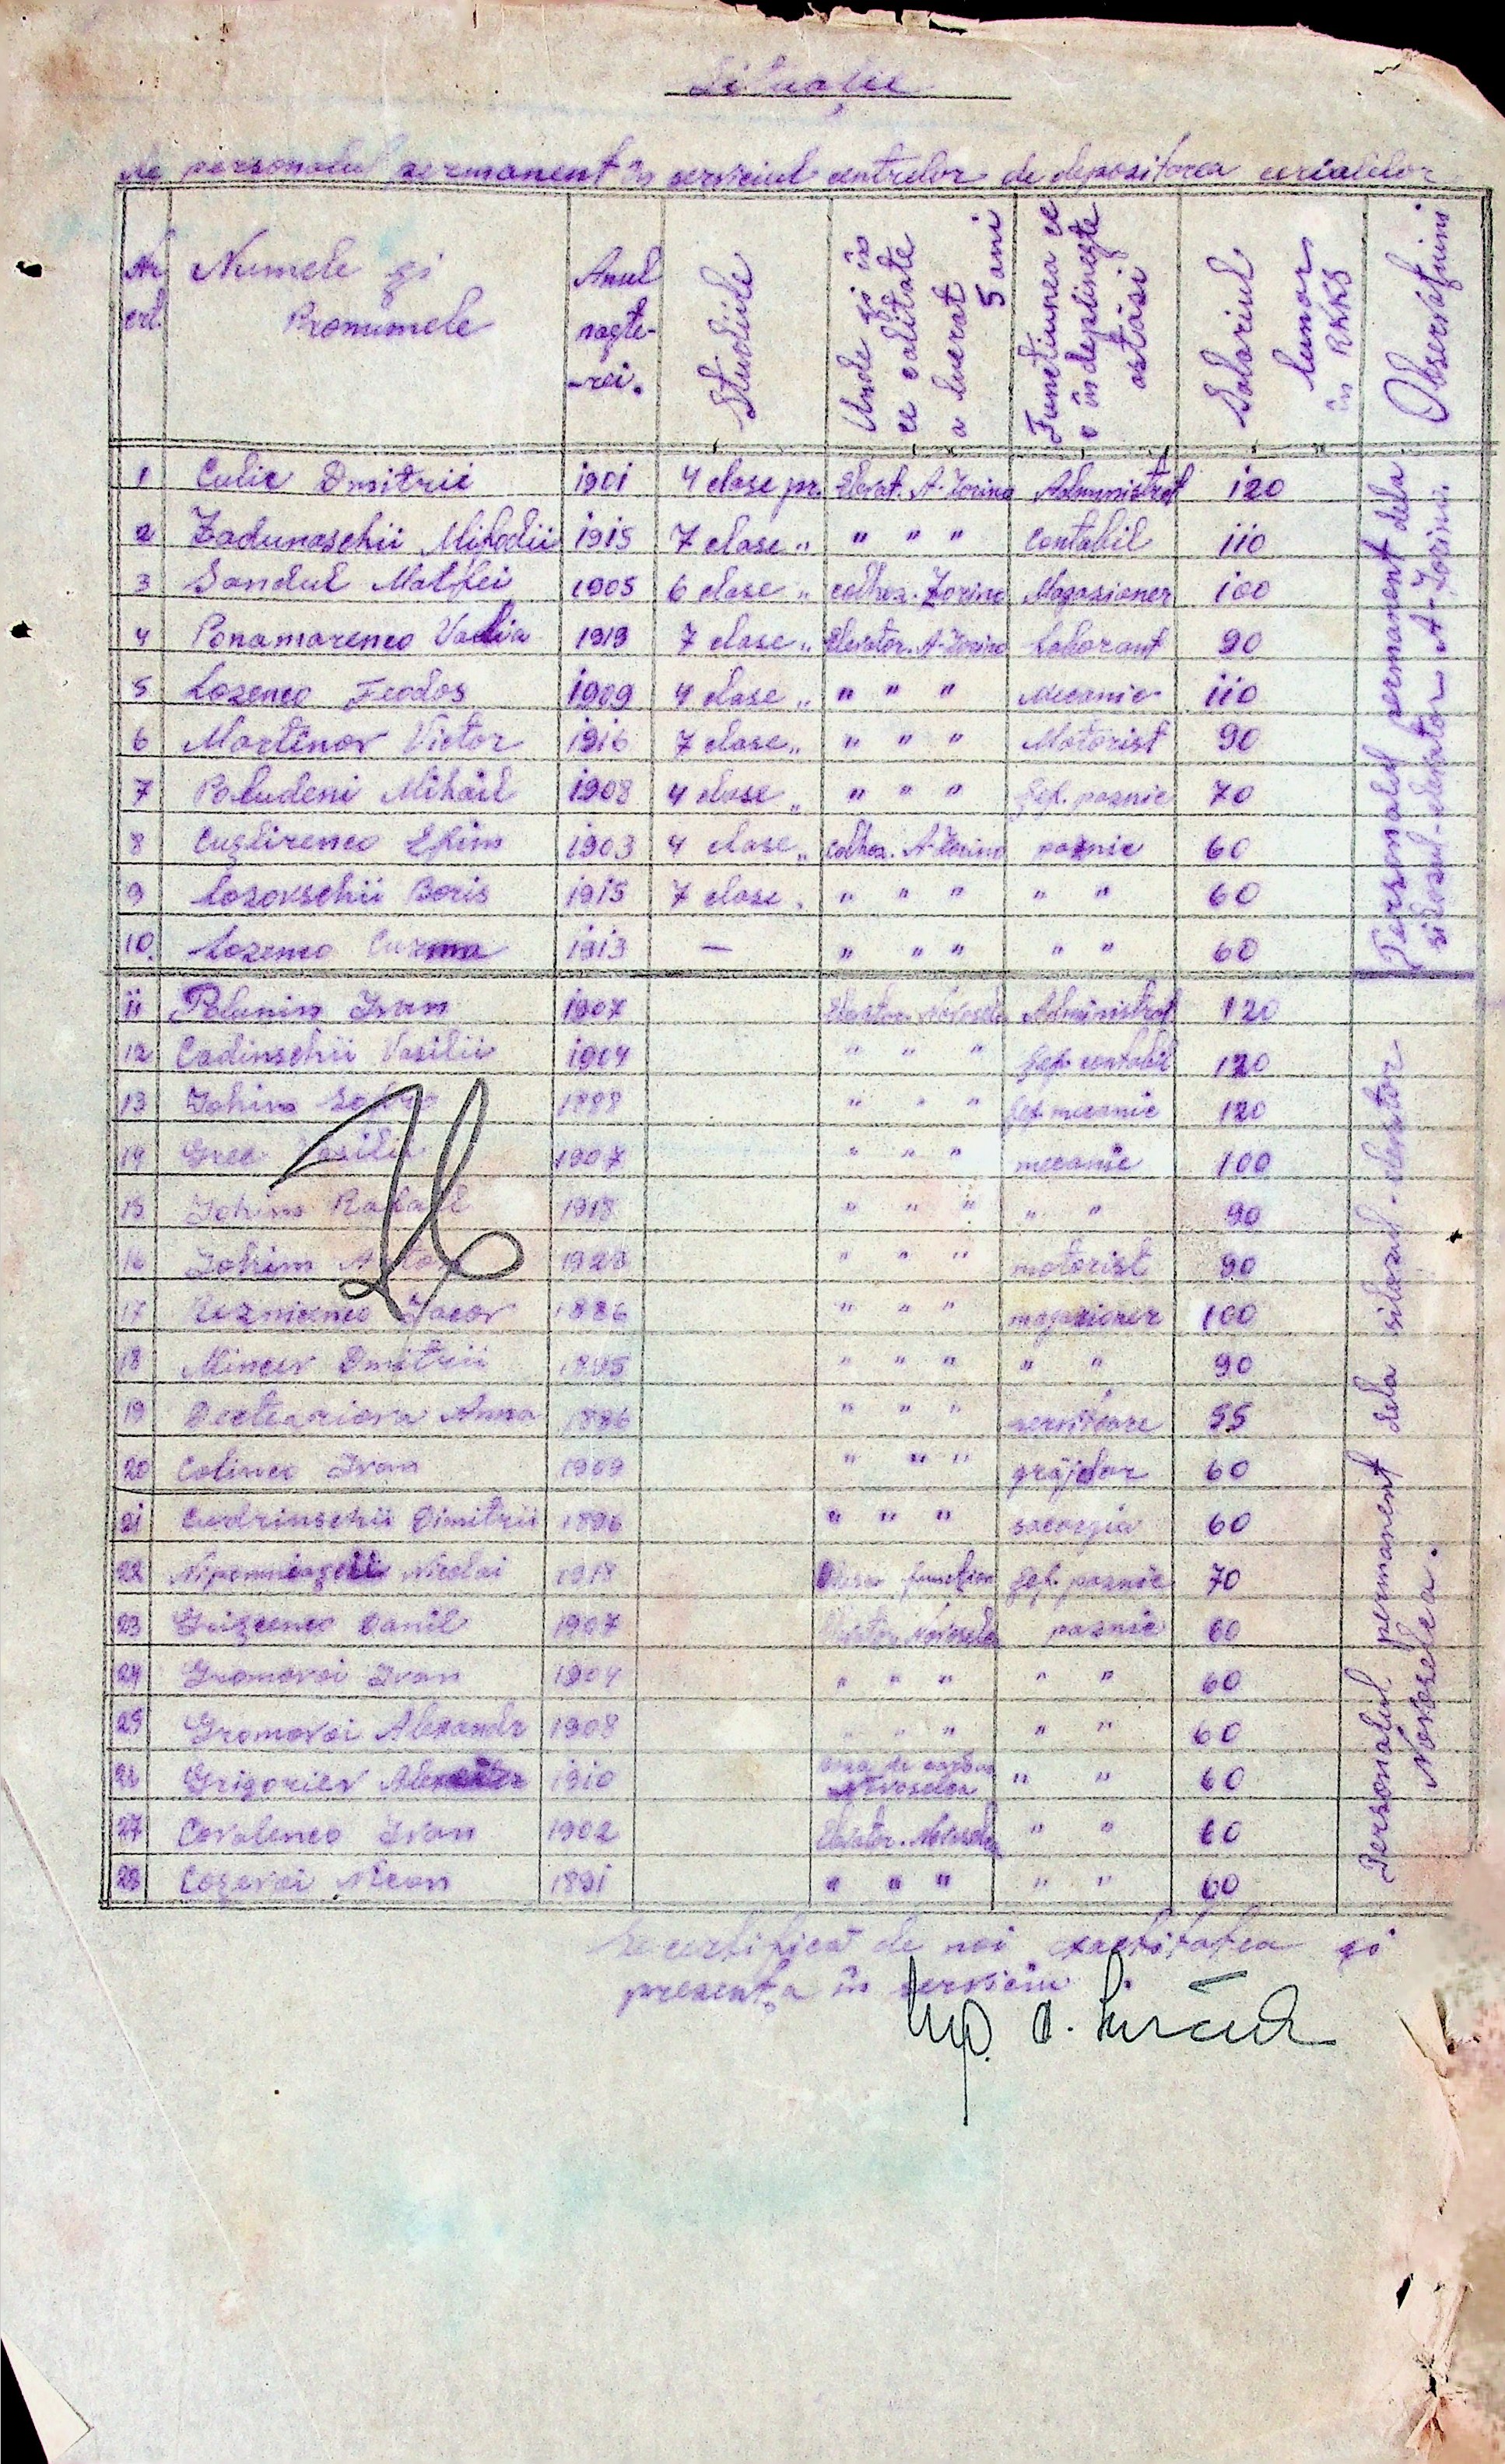 Situație
de personalul permanent în serviciul centrelor de depozitarea cerialelor
Nr. crt. Numele și Pronumele Anul naște-rei. Studiile Unde și în ce calitate a lucrat 5 ani Funcțiunea ce o îndeplinește astăsi Salariul lunar în RKKS Observațiuni
1 Culic Dmitrii 1901 4 clase pr. Elevat. A-Zorina Administrat 120
2 Zadunaschii Mifodii 1915 7 clase " " " " contabil 110
3 Sandul Matfei 1905 6 clase " colhoz. Zorina Magasioner 100
4 Ponamarenco Valia 1919 7 clase " Elevator. A-Zorina Laborant 90
5 Lozenco Feodos 1909 4 clase " " " " Mecanic 110
6 Martênov Victor 1916 7 clase " " " " Motorist 90
7 Poludeni Mihail 1908 4 clase " " " " Șef. paznic 70
8 Cușlirenco Efim 1903 4 clase " colhoz. A-Zorina paznic 60
9 Lozovschii Boris 1915 7 clase " " " " " " 60
10. Lozenco Cuzma 1913 — " " " " " 60
Personalul permanent dela silozul-elevator A-Zorina.
11 Polunin Ivan 1907 Elevator Novosela Administrat 120
12 Cadinschii Vasilii 1904 " " " Șef contabil 120
13 Iohim 1888 " " " Șef mecanic 120
14 Grec Vasilii 1907 " " " mecanic 100
15 Iohim Rafail 1918 " " " " " 90
16 Iohim 1928 " " " motorist 90
17 Reznicenco Iacov 1886 " " " magazioner 100
18 Mincev Dmitrii 1895 " " " " " 90
19 Anna 1886 " " " servitoare 55
20 Colinco Ivan 1909 " " " grăjdar 60
21 Cudrinschii Dimitrii 1896 " " " 60
22 Nicolai 1918 Șef. paznic 70
23 Danil 1907 Elevator Novosela paznic 60
24 Gromovoi Ivan 1904 " " " " " 60
25 Gromovoi Alexandr 1908 " " " " " 60
26 Grigoriev 1910 Novoselea " " 60
27 Covalenco Ivan 1902 Elevator. Novosela " " 60
28 Coșevoi 1891 " " " " " 60
Personalul permanent dela silozul-elevator Novoselea.
Se certifică de noi exactitatea și
prezența în serviciu.
Ing.